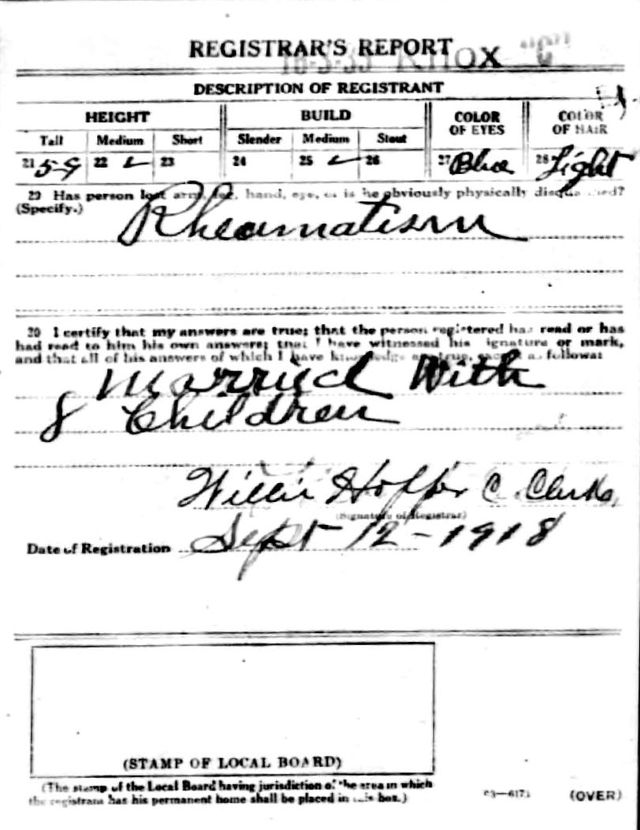 REGISTRAR'S REPORT
16-3-35 KNOX "C"
DESCRIPTION OF REGISTRANT
HEIGHT BUILD COLOR OF EYES COLOR OF HAIR
Tall Medium Short Slender Medium Stout
21 5-9 22 ✓ 23 24 25 ✓ 26 27 Blue 28 Light
29 Has person lost arm, leg, hand, eye, or is he obviously physically disqualified?
(Specify.) Rheumatism
30 I certify that my answers are true; that the person registered has read or has
had read to him his own answers; that I have witnessed his signature or mark,
and that all of his answers of which I have knowledge are true, except as follows:
Married With
8 Children
Willie Hoffer C. Clerks,
(Signature of Registrar)
Date of Registration Sept 12-1918
(STAMP OF LOCAL BOARD)
(The stamp of the Local Board having jurisdiction of the area in which
the registrant has his permanent home shall be placed in this box.)
03—6171 (OVER)